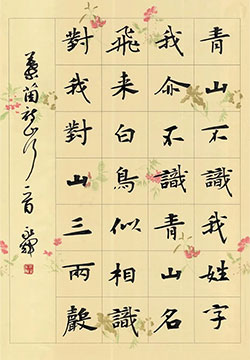 青山不識我姓字
我亦不識青山名
飛来白鳥似相識
對我對山三兩聲
葉茵詩山行一首